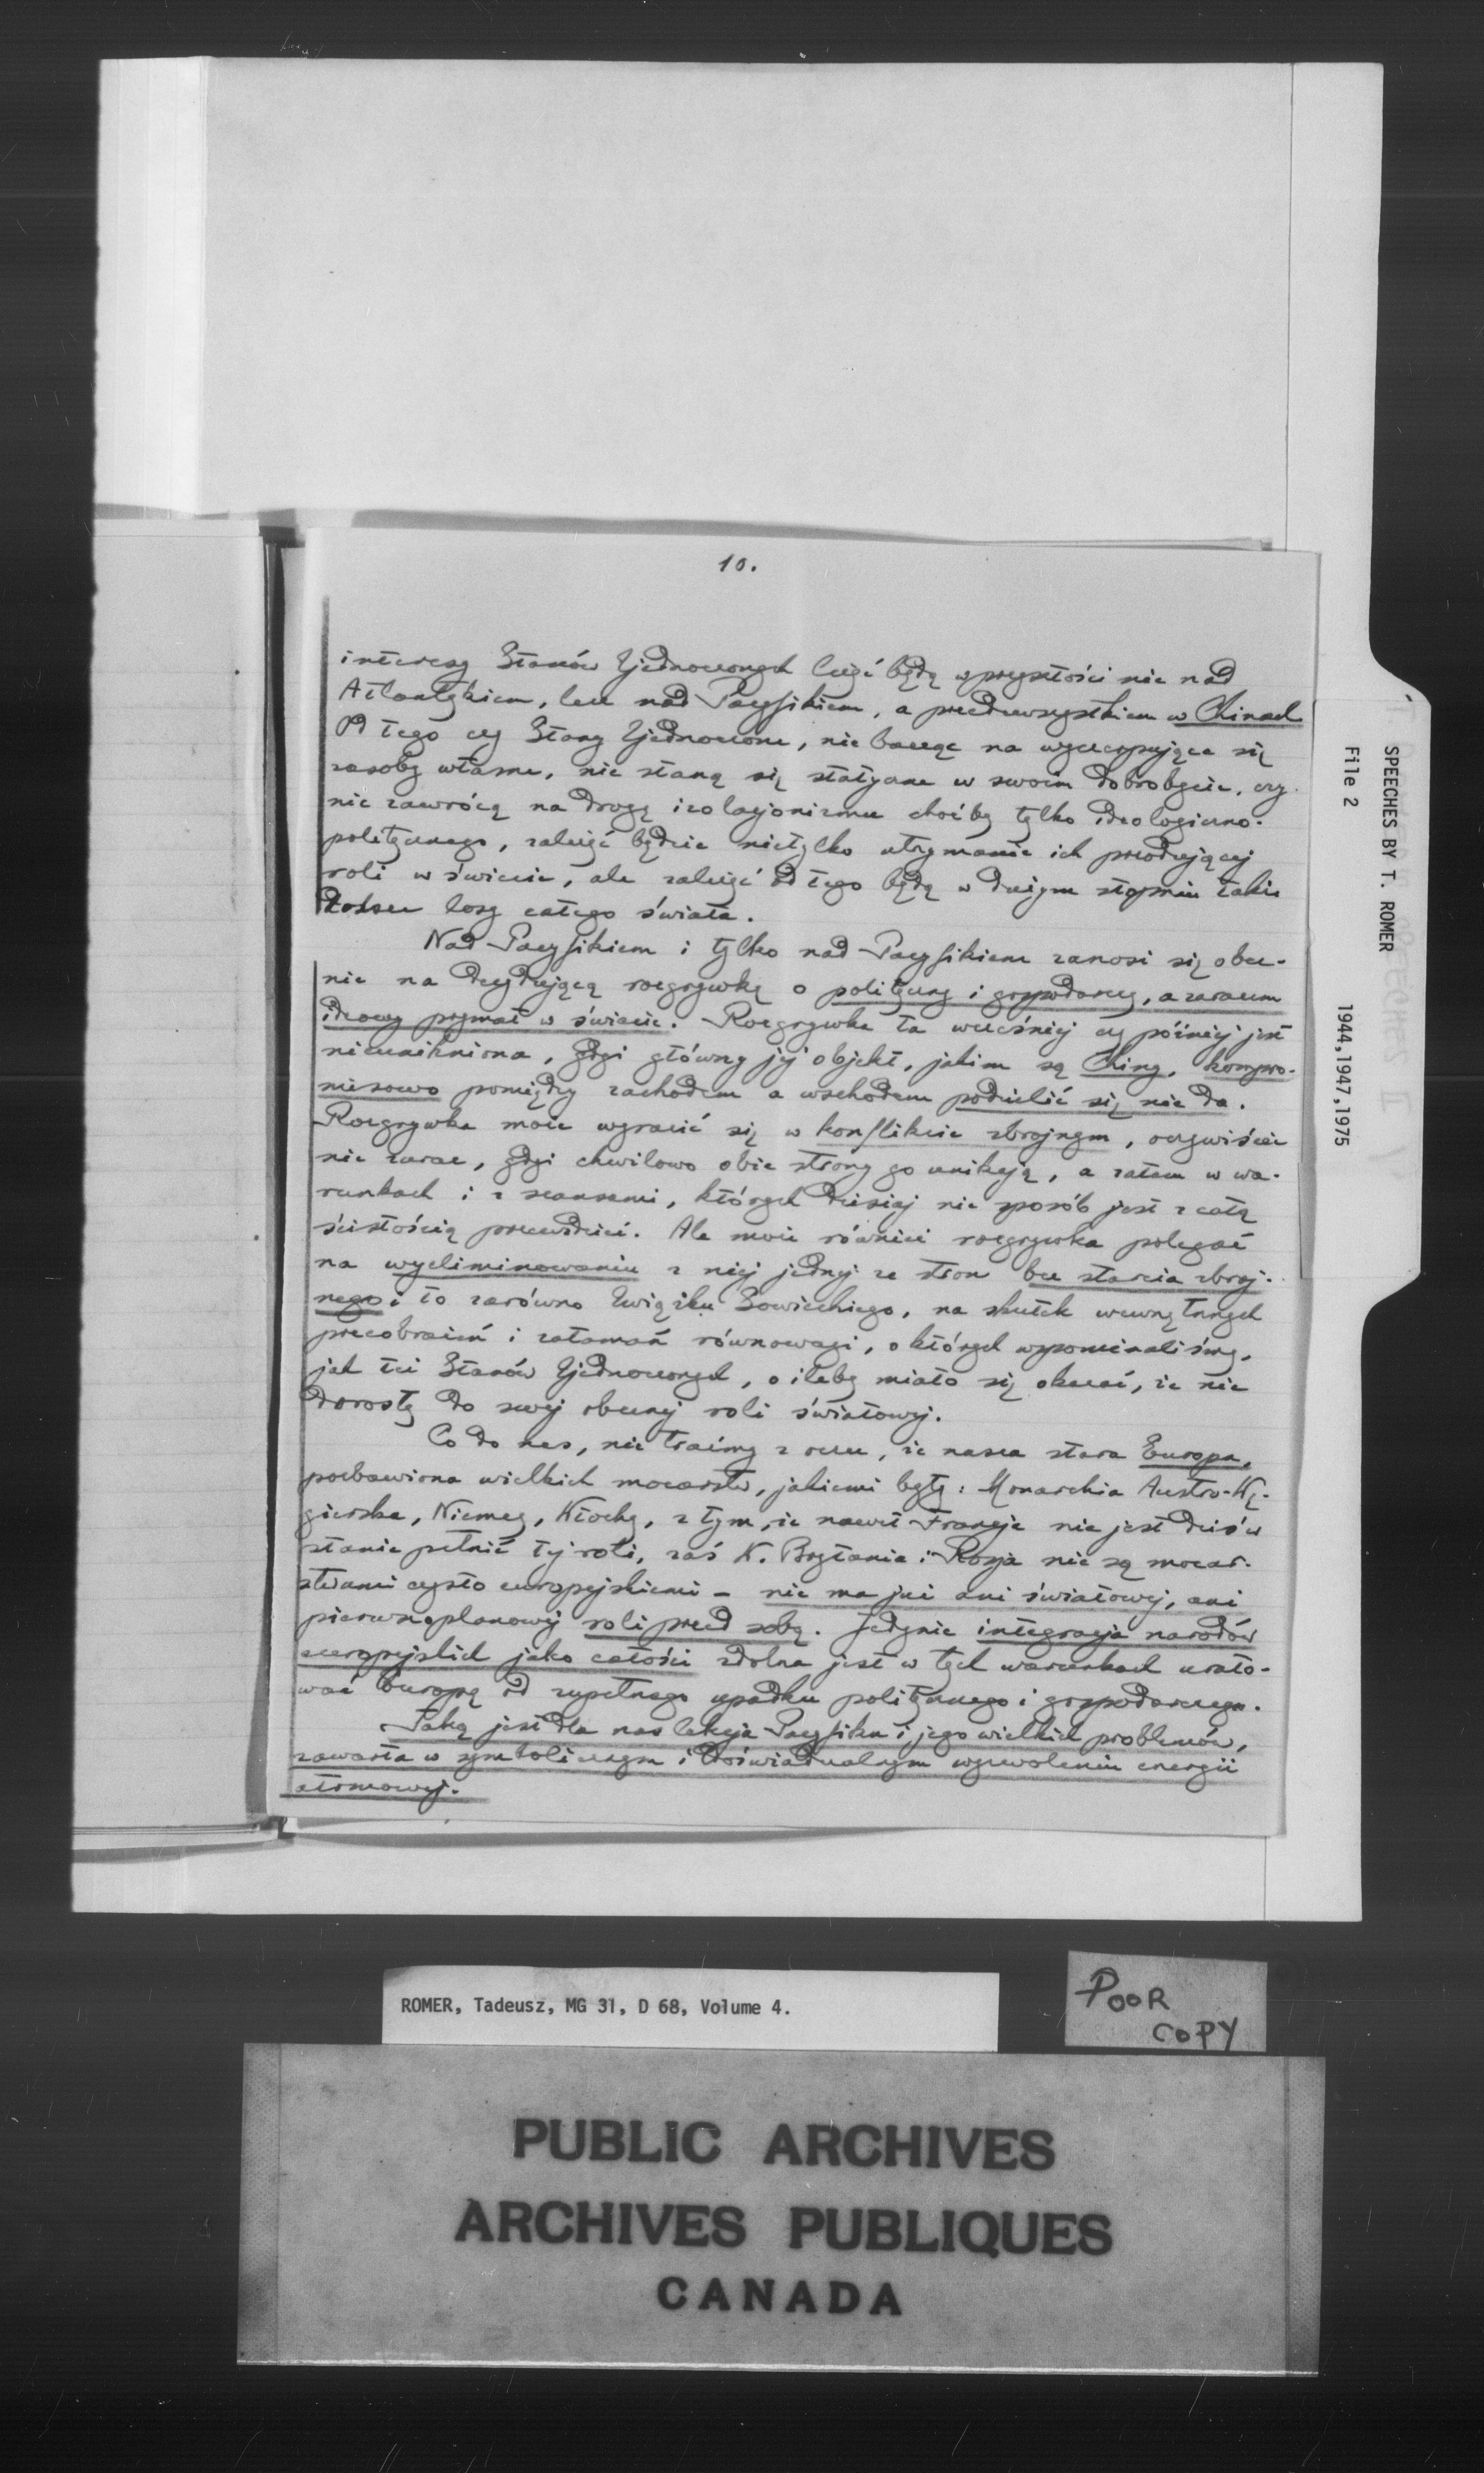 10.
interesy Stanów Zjednoczonych leżeć będą w przyszłości nie nad
Atlantykiem, lecz nad Pacyfikiem, a przedewszystkiem w Chinach
Od tego czy Stany Zjednoczone, nie bacząc na wyczerpujące się
zasoby własne, nie staną się statyczne w swoim dobrobycie, czy
nie zawrócą na drogę izolacjonizmu choćby tylko ideologiczno-
politycznego, zależeć będzie nietylko utrzymanie ich przodującej
roli w świecie, ale zależeć od tego będą w dużym stopniu także
dalsze losy całego świata.
Nad Pacyfikiem i tylko nad Pacyfikiem zanosi się obec-
nie na decydującą rozgrywkę o polityczny i gospodarczy, a zarazem
ideowy prymat w świecie. Rozgrywka ta wcześniej czy później jest
nieunikniona, gdyż główny jej objekt, jakim są Chiny, kompro-
misowo pomiędzy zachodem a wschodem podzielić się nie da.
Rozgrywka może wyrazić się w konflikcie zbrojnym, oczywiście
nie zaraz, gdyż chwilowo obie strony go unikają, a zatem w wa-
runkach i z szansami, których dzisiaj nie sposób jest z całą
ścisłością przewidzieć. Ale może również rozgrywka polegać
na wyeliminowaniu z niej jednej ze stron bez starcia zbroj-
nego i to zarówno Związku Sowieckiego, na skutek wewnętrznych
przeobrażeń i załamań równowagi, o których wspominaliśmy,
jak też Stanów Zjednoczonych, o ileby miało się okazać, że nie
dorosły do swej obecnej roli światowej.
Co do nas, nie traćmy z oczu, że nasza stara Europa,
pozbawiona wielkich mocarstw, jakiemi były: Monarchia Austro-Wę-
gierska, Niemcy, Włochy, z tym, że nawet Francja nie jest dziś w
stanie pełnić tej roli, zaś W. Brytania i Rosja nie są mocar-
stwami czysto europejskiemi - nie ma już ani światowej, ani
pierwszoplanowej roli przed sobą. Jedynie integracja narodów
europejskich jako całości zdolna jest w tych warunkach urato-
wać Europę od zupełnego upadku politycznego i gospodarczego.
Taką jest dla nas lekcja Pacyfiku i jego wielkich problemów,
zawarta w symbolicznym i doświadczalnym wyzwoleniu energii
atomowej.
SPEECHES BY T. ROMER
File 2 1944,1947,1975
ROMER, Tadeusz, MG 31, D 68, Volume 4.
POOR
COPY
PUBLIC ARCHIVES
ARCHIVES PUBLIQUES
CANADA